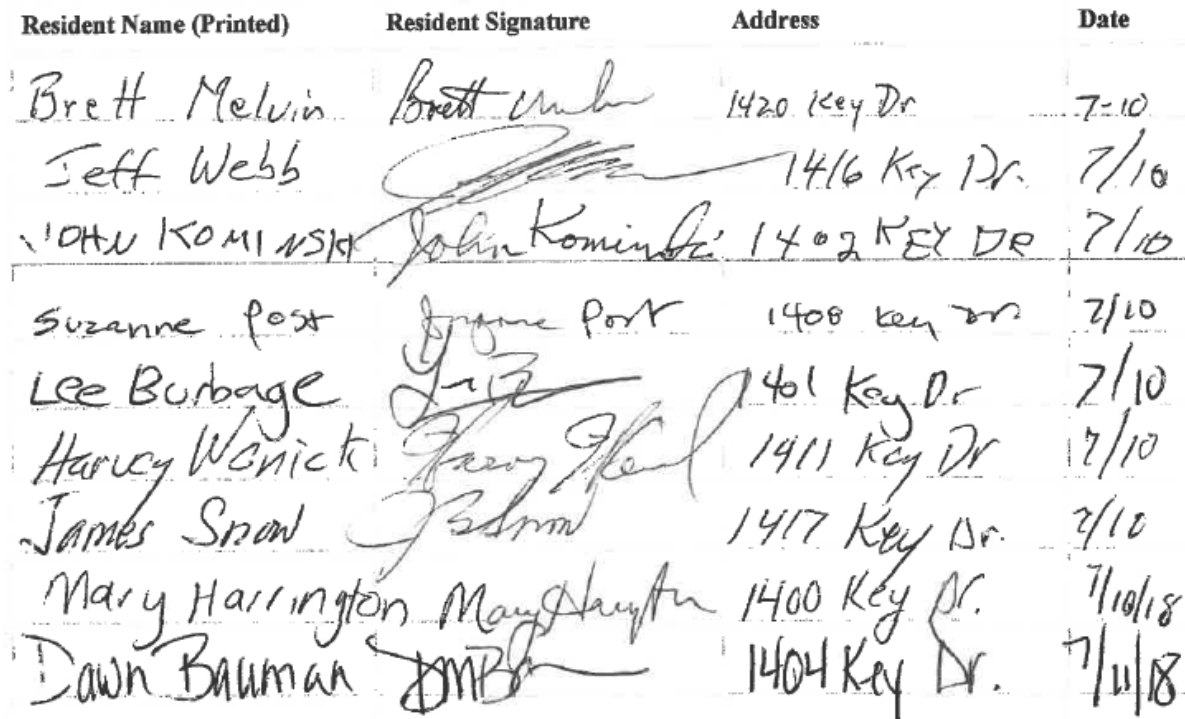 Resident Name (Printed) Resident Signature Address Date
Brett Melvin Brett 1420 Key Dr 7-10
Jeff Webb 1416 Key Dr. 7/10
JOHN KOMINSKI John Kominski 1402 KEY DR 7/10
Suzanne Post Suzanne Post 1408 Key Dr 7/10
Lee Burbage 1401 Key Dr 7/10
Harvey Wanick 1411 Key Dr 7/10
James Snow JBSnow 1417 Key Dr. 7/10
Mary Harrington Mary Harrington 1400 Key Dr. 7/10/18
Dawn Bauman DMB 1404 Key Dr. 7/11/18